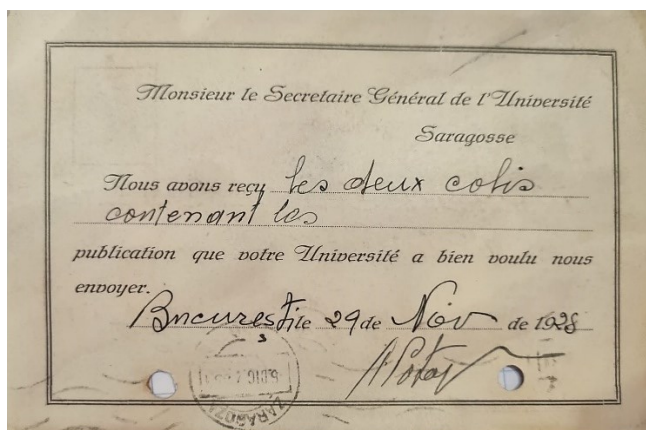 Monsieur le Secretaire Général de l'Université
Saragosse
Nous avons reçu les deux colis
contenant les
publication que votre Université a bien voulu nous
envoyer.
Bucuresti le 29 de Nov de 1928
ZARAGOZA